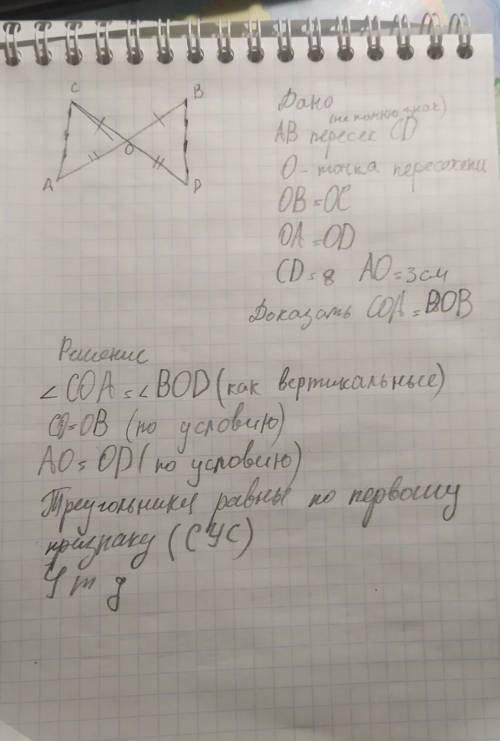 C
B
O
A
D
Дано
(не помню знак)
AB пересек CD
O - точка пересечени
OB = OC
OA = OD
CD = 8 AO = 3 см
Доказать COA = DOB
Решение
∠COA = ∠BOD (как вертикальные)
CO = OB (по условию)
AO = OD (по условию)
Треугольники равны по первому
признаку (СУС)
Ч т д